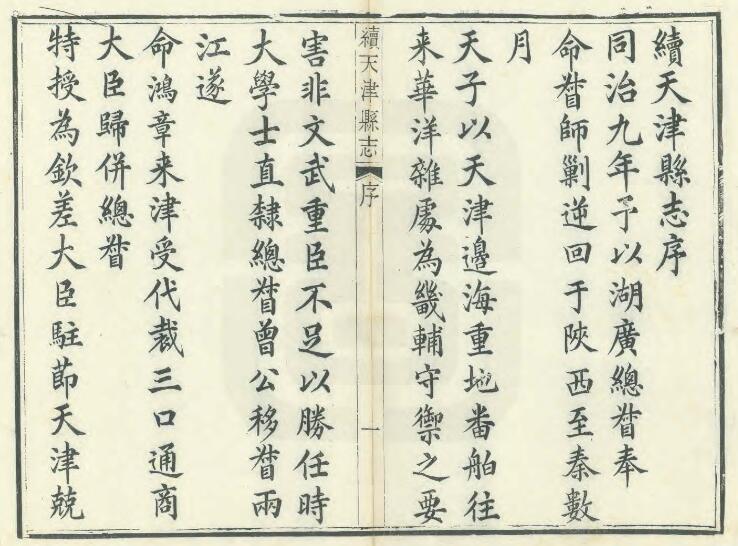 續天津縣志序
同治九年予以湖廣總督奉
命督師剿逆回于陝西至秦數
月
天子以天津邊海重地番舶往
来華洋雜處為畿輔守禦之要
續天津縣志 序 一
害非文武重臣不足以勝任時
大學士直隸總督曾公移督兩
江遂
命鴻章来津受代裁三口通商
大臣歸併總督
特授為欽差大臣駐節天津兢